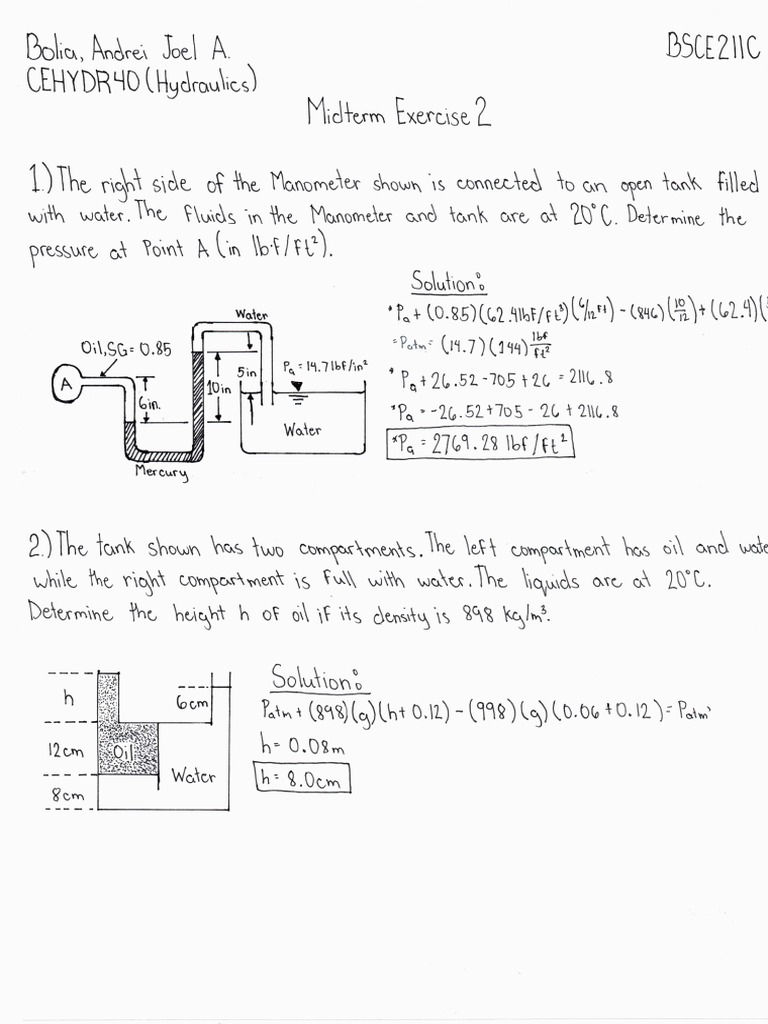 Bolia, Andrei Joel A.
BSCE211C
CEHYDR40 (Hydraulics)
Midterm Exercise 2
1.) The right side of the Manometer shown is connected to an open tank filled
with water. The fluids in the Manometer and tank are at 20°C. Determine the
pressure at Point A (in lb·f/ft²).
Solution:
*Pa + (0.85)(62.4lbf/ft³)(6/12 ft) - (846)(10/12) + (62.4)(
= Patm = (14.7)(144) lbf/ft²
* Pa + 26.52 - 705 + 26 = 2116.8
*Pa = -26.52 + 705 - 26 + 2116.8
*Pa = 2769.28 lbf/ft²
Water
Oil, SG= 0.85
Pa = 14.7 lbf/in²
A
5in
10in
6in.
Water
Mercury
2.) The tank shown has two compartments. The left compartment has oil and wate
while the right compartment is full with water. The liquids are at 20°C.
Determine the height h of oil if its density is 898 kg/m³.
Solution:
Patm + (898)(g)(h + 0.12) - (998)(g)(0.06 + 0.12) = Patm
h = 0.08m
h = 8.0cm
h
6cm
12cm
Oil
Water
8cm